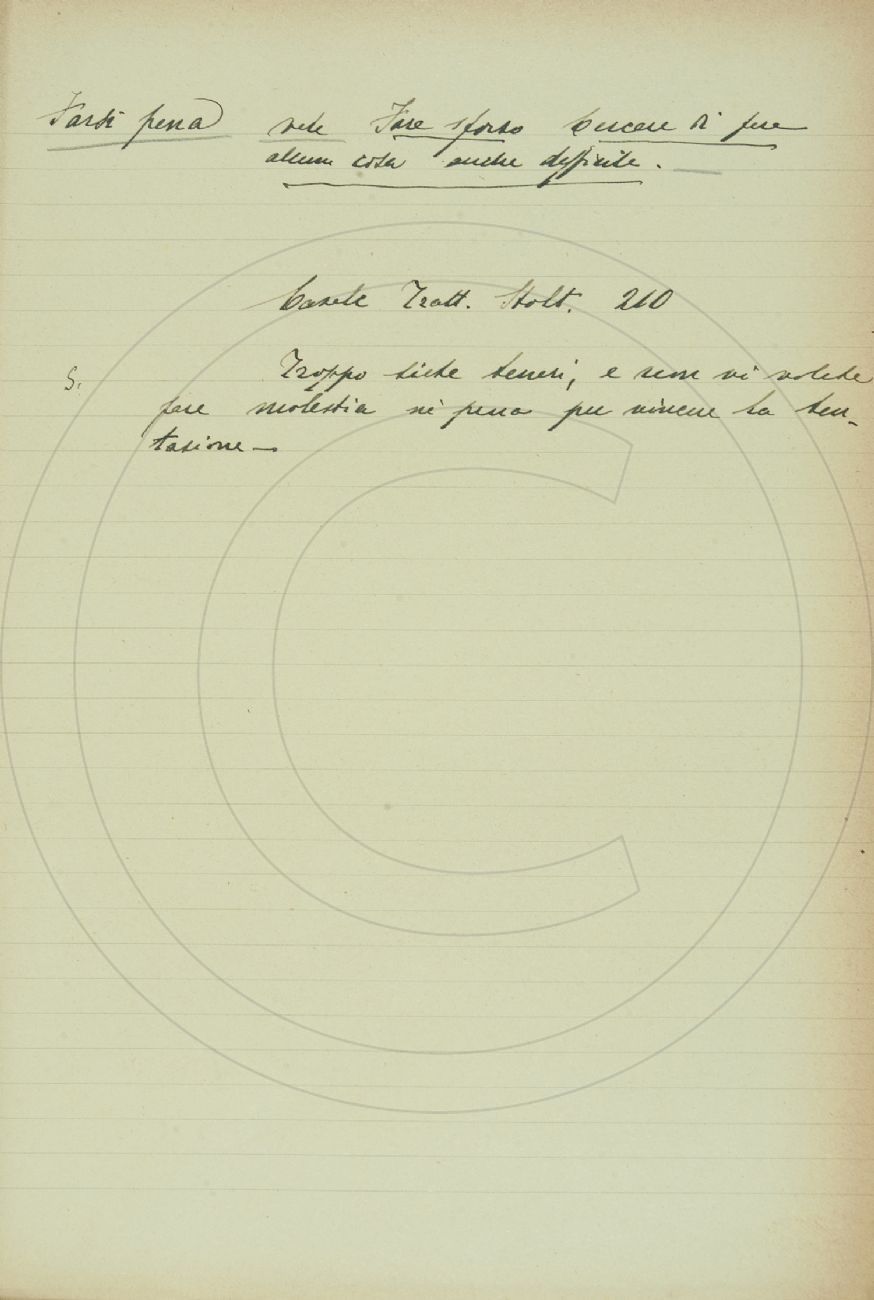 Farsi pena vale Fare sforzo Cercare di fare
alcuna cosa anche difficile.
Cavalc. Tratt. Stolt. 210
S. Troppo siete teneri, e non vi volete
fare molestia nè pena per vincere la ten-
tazione —